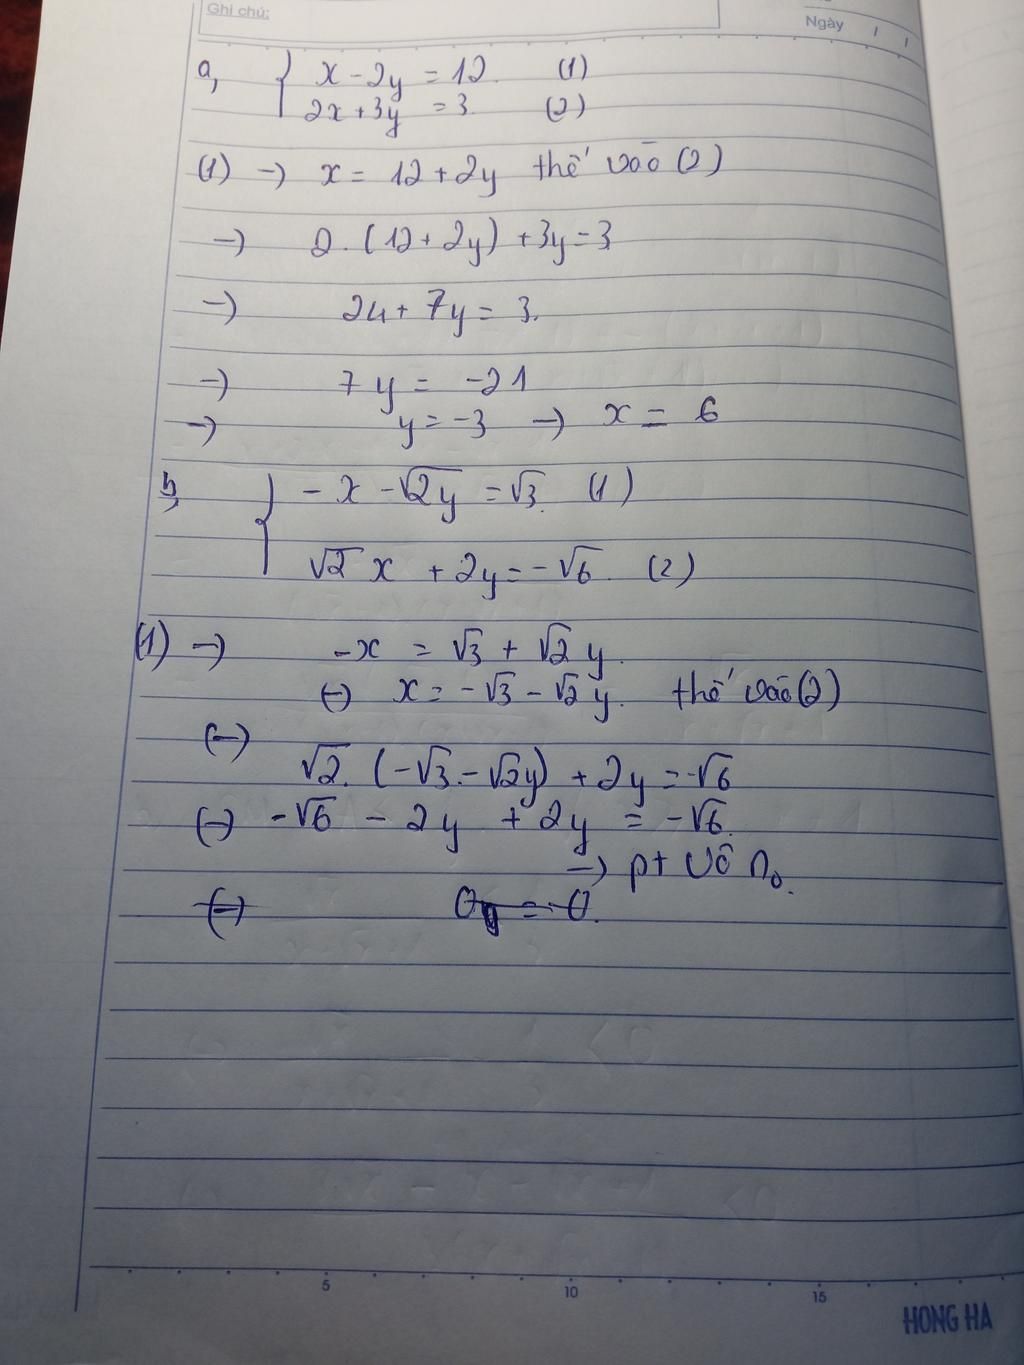 Ghi chú:
Ngày / /
a, { x - 2y = 12 (1)
2x + 3y = 3 (2)
(1) → x = 12 + 2y thế vào (2)
→ 2. (12 + 2y) + 3y = 3
→ 24 + 7y = 3.
→ 7y = -21
→ y = -3 → x = 6
b, { - x - √2y = √3. (1)
√2 x + 2y = - √6. (2)
(1) → -x = √3 + √2 y.
(→) x = - √3 - √2 y. thế vào (2)
(→)
√2. (-√3 - √2y) + 2y = -√6
(→) -√6 - 2y + 2y = -√6.
→ pt vô no.
(→) 0y = 0.
5 10 15
HONG HA